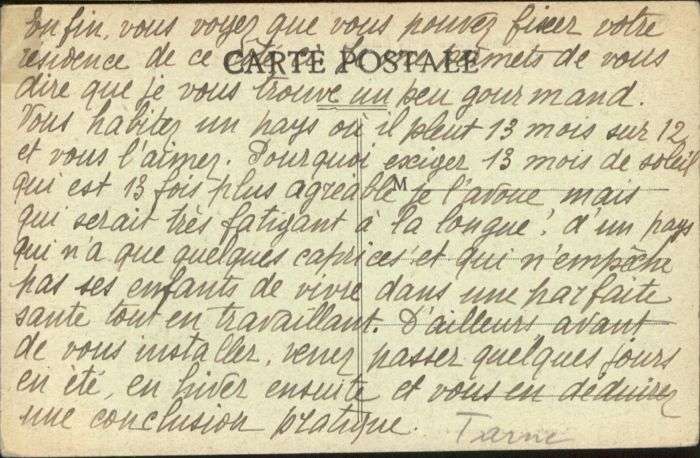 Enfin, vous voyez que vous pouvez fixer votre
résidence de ce permets de vous
CARTE POSTALE
dire que je vous trouve un peu gourmand.
Vous habitez un pays où il pleut 13 mois sur 12
et vous l'aimez. Pourquoi exiger 13 mois de soleil
M
qui est 13 fois plus agréable je l'avoue mais
qui serait très fatigant à la longue! d'un pays
qui n'a que quelques caprices et qui n'empêche
pas ses enfants de vivre dans une parfaite
santé tout en travaillant. D'ailleurs avant
de vous installer, venez passer quelques jours
en été, en hiver ensuite et vous en déduirez
une conclusion pratique.